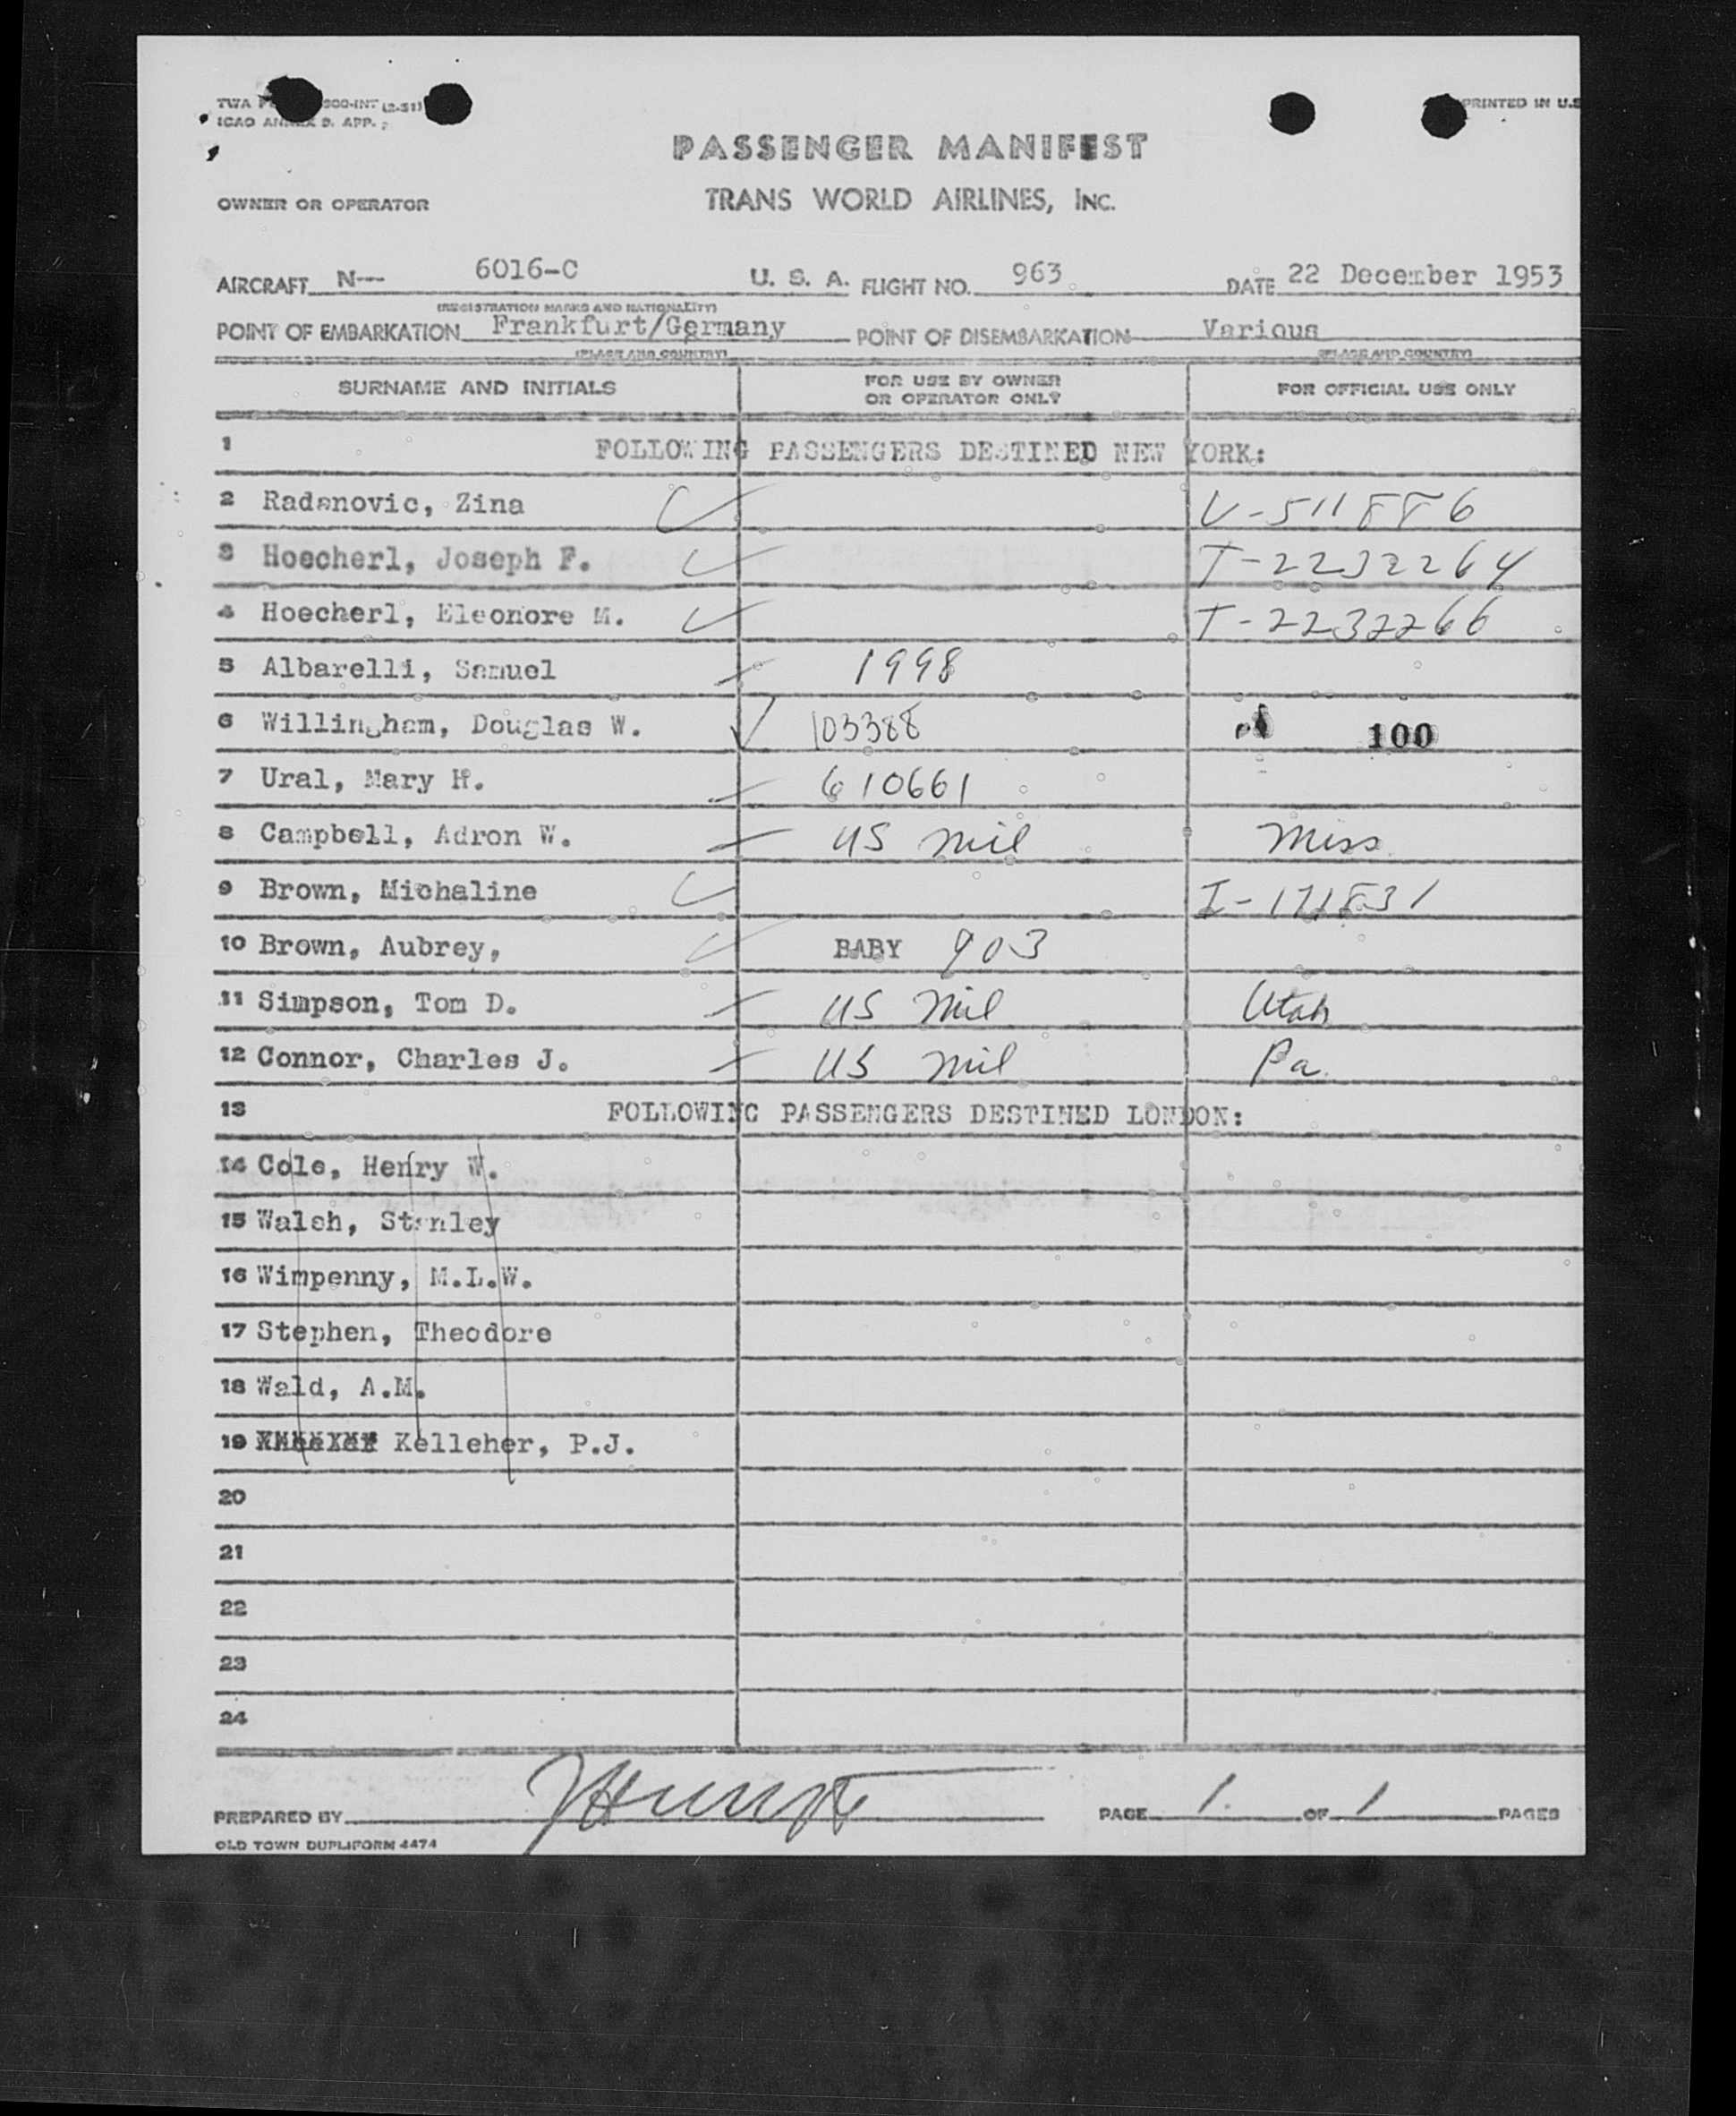 TWA 900-INT (2-51)
ICAO ANNEX 9. APP.
PRINTED IN U.S
PASSENGER MANIFEST
OWNER OR OPERATOR TRANS WORLD AIRLINES, INC.
AIRCRAFT N-- 6016-C U. S. A. FLIGHT NO. 963 DATE 22 December 1953
(REGISTRATION MARKS AND NATIONALITY)
POINT OF EMBARKATION Frankfurt/Germany POINT OF DISEMBARKATION Various
(PLACE AND COUNTRY) (PLACE AND COUNTRY)
SURNAME AND INITIALS FOR USE BY OWNER OR OPERATOR ONLY FOR OFFICIAL USE ONLY
1 FOLLOWING PASSENGERS DESTINED NEW YORK:
2 Radanovic, Zina V-511886
3 Hoecherl, Joseph F. T-2232264
4 Hoecherl, Eleonore M. T-2232266
5 Albarelli, Samuel 1998
6 Willingham, Douglas W. 103388 100
7 Ural, Mary H. 610661
8 Campbell, Adron W. US Mil Miss.
9 Brown, Michaline I-171831
10 Brown, Aubrey, BABY 903
11 Simpson, Tom D. US Mil Utah
12 Connor, Charles J. US Mil Pa.
13 FOLLOWING PASSENGERS DESTINED LONDON:
14 Cole, Henry W.
15 Walsh, Stanley
16 Wimpenny, M.L.W.
17 Stephen, Theodore
18 Wald, A.M.
19 Kelleher, P.J.
20
21
22
23
24
PREPARED BY PAGE 1. OF 1 PAGES
OLD TOWN DUPLIFORM 4474